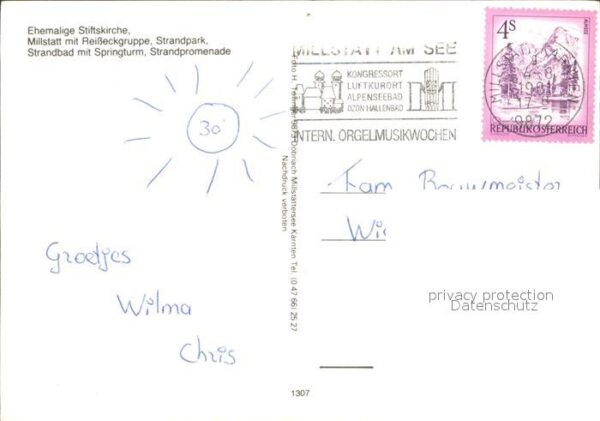 Ehemalige Stiftskirche,
Millstatt mit Reißeckgruppe, Strandpark,
Strandbad mit Springturm, Strandpromenade
30°
Groetjes
Wilma
Chris
H. 9873 Döbriach Millstättersee Kärnten Tel. (0 47 66) 25 27
Nachdruck verboten
1307
MILLSTATT AM SEE
KONGRESSORT
LUFTKURORT
ALPENSEEBAD
OZON HALLENBAD
INTERN. ORGELMUSIKWOCHEN
4S
ALMSEE
1981
9872
REPUBLIK ÖSTERREICH
Fam Bouwmeister
privacy protection
Datenschutz